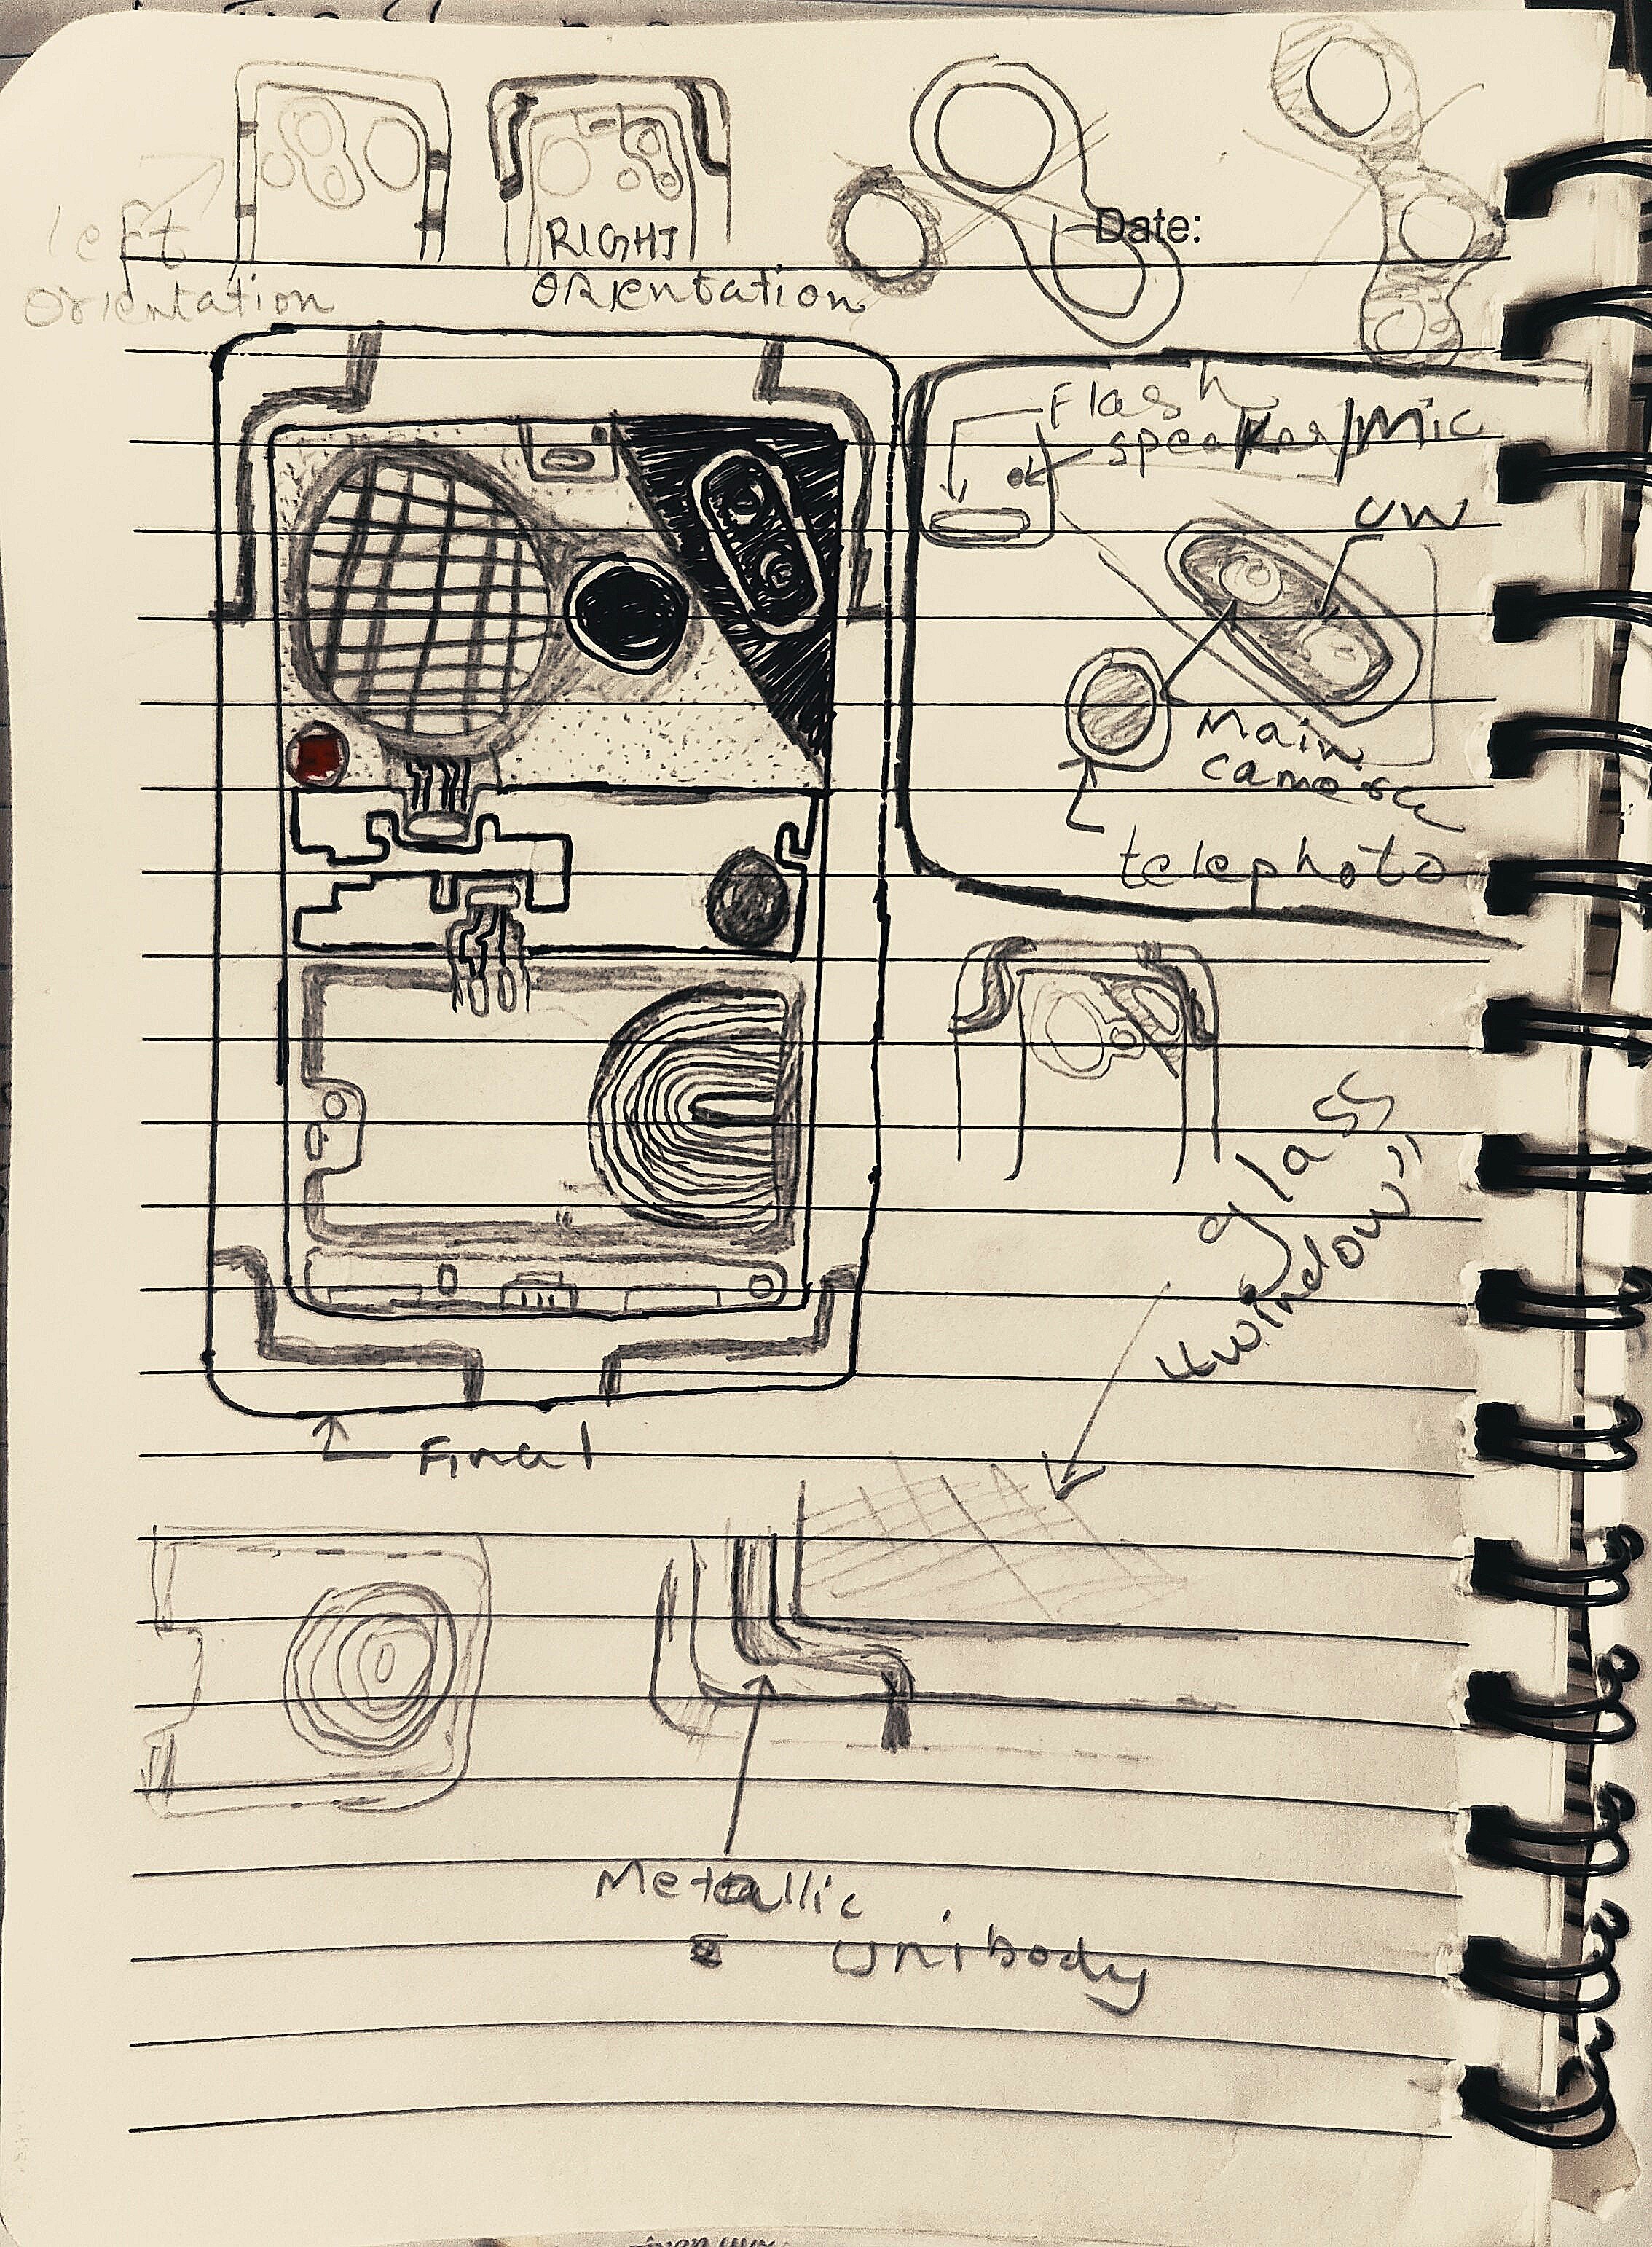 left
Orientation
RIGHT
ORientation
Date:
Flash
speaker/Mic
UW
Main
camera
telephoto
glass
"window"
Final
Metallic
unibody